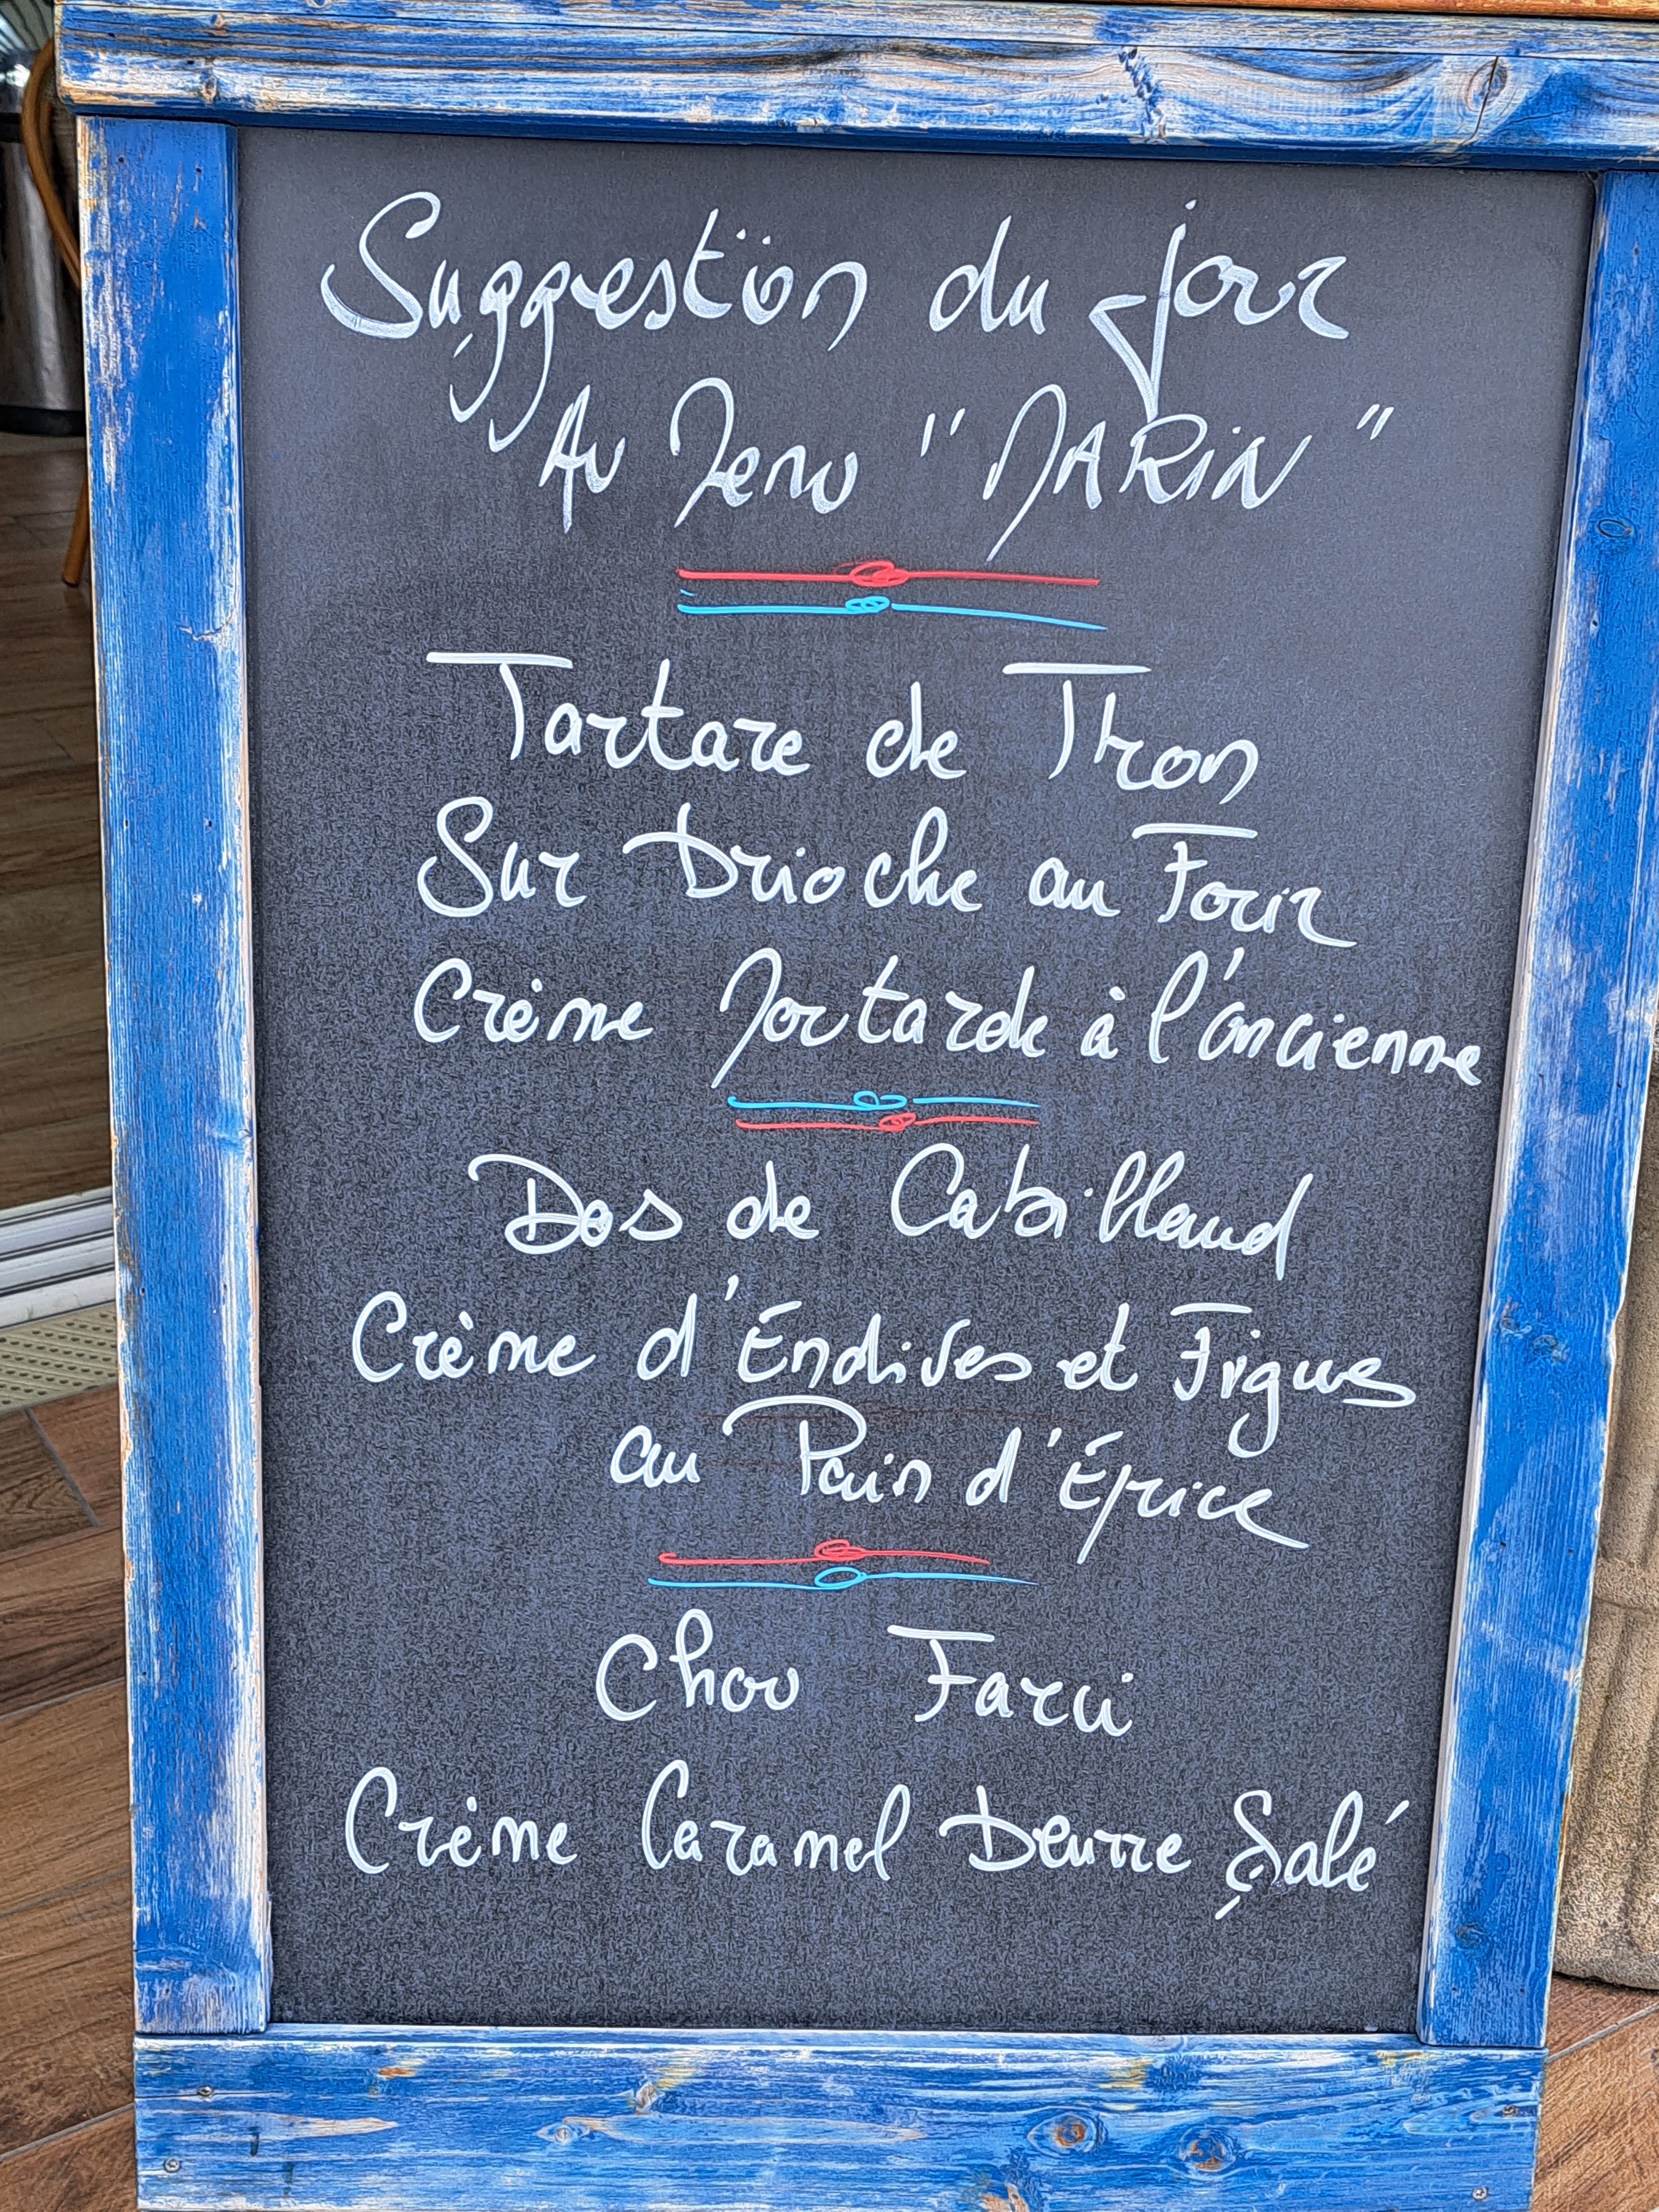 Suggestion du jour
Au Menu "MARIN"
Tartare de Thon
Sur Brioche au Four
Crème Moutarde à l'ancienne
Dos de Cabillaud
Crème d'Endives et Figues
au Pain d'Épice
Chou Farci
Crème Caramel Beurre Salé